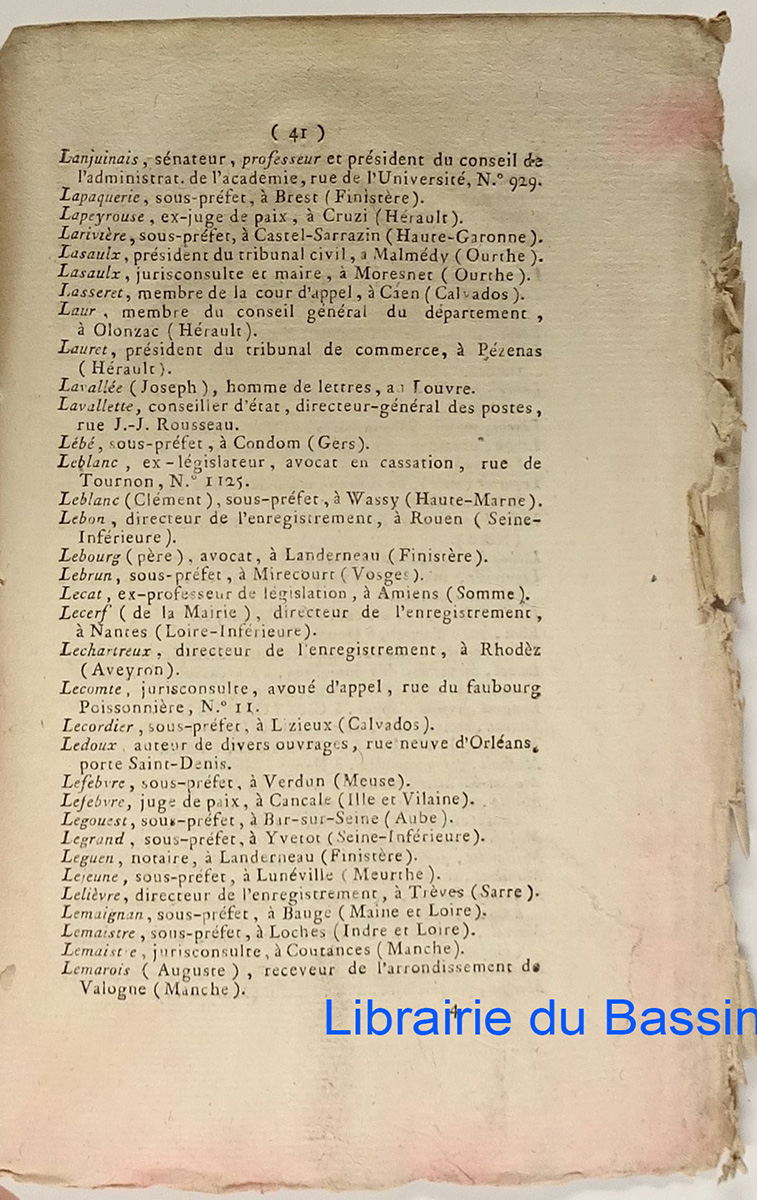 ( 41 )
Lanjuinais, sénateur, professeur et président du conseil de
l'administrat. de l'académie, rue de l'Université, N.° 929.
Lapaquerie, sous-préfet, à Brest (Finistère).
Lapeyrouse, ex-juge de paix, à Cruzi (Hérault).
Larivière, sous-préfet, à Castel-Sarrazin (Haute-Garonne).
Lasaulx, président du tribunal civil, à Malmédy (Ourthe).
Lasaulx, jurisconsulte et maire, à Moresnet (Ourthe).
Lasseret, membre de la cour d'appel, à Caen (Calvados).
Laur, membre du conseil général du département,
à Olonzac (Hérault).
Lauret, président du tribunal de commerce, à Pézenas
(Hérault).
Lavallée (Joseph), homme de lettres, au Louvre.
Lavallette, conseiller d'état, directeur-général des postes,
rue J.-J. Rousseau.
Lébé, sous-préfet, à Condom (Gers).
Leblanc, ex-législateur, avocat en cassation, rue de
Tournon, N.° 1125.
Leblanc (Clément), sous-préfet, à Wassy (Haute-Marne).
Lebon, directeur de l'enregistrement, à Rouen (Seine-
Inférieure).
Lebourg (père), avocat, à Landerneau (Finistère).
Lebrun, sous-préfet, à Mirecourt (Vosges).
Lecat, ex-professeur de législation, à Amiens (Somme).
Lecerf (de la Mairie), directeur de l'enregistrement,
à Nantes (Loire-Inférieure).
Lechartreux, directeur de l'enregistrement, à Rhodèz
(Aveyron).
Lecomte, jurisconsulte, avoué d'appel, rue du faubourg
Poissonnière, N.° 11.
Lecordier, sous-préfet, à Lizieux (Calvados).
Ledoux, auteur de divers ouvrages, rue neuve d'Orléans,
porte Saint-Denis.
Lefebvre, sous-préfet, à Verdun (Meuse).
Lefebvre, juge de paix, à Cancale (Ille et Vilaine).
Legouest, sous-préfet, à Bar-sur-Seine (Aube).
Legrand, sous-préfet, à Yvetot (Seine-Inférieure).
Leguen, notaire, à Landerneau (Finistère).
Lejeune, sous-préfet, à Lunéville (Meurthe).
Lelièvre, directeur de l'enregistrement, à Trèves (Sarre).
Lemaignan, sous-préfet, à Baugé (Maine et Loire).
Lemaistre, sous-préfet, à Loches (Indre et Loire).
Lemaistre, jurisconsulte, à Coutances (Manche).
Lemarois (Auguste), receveur de l'arrondissement de
Valogne (Manche).
4
Librairie du Bassin